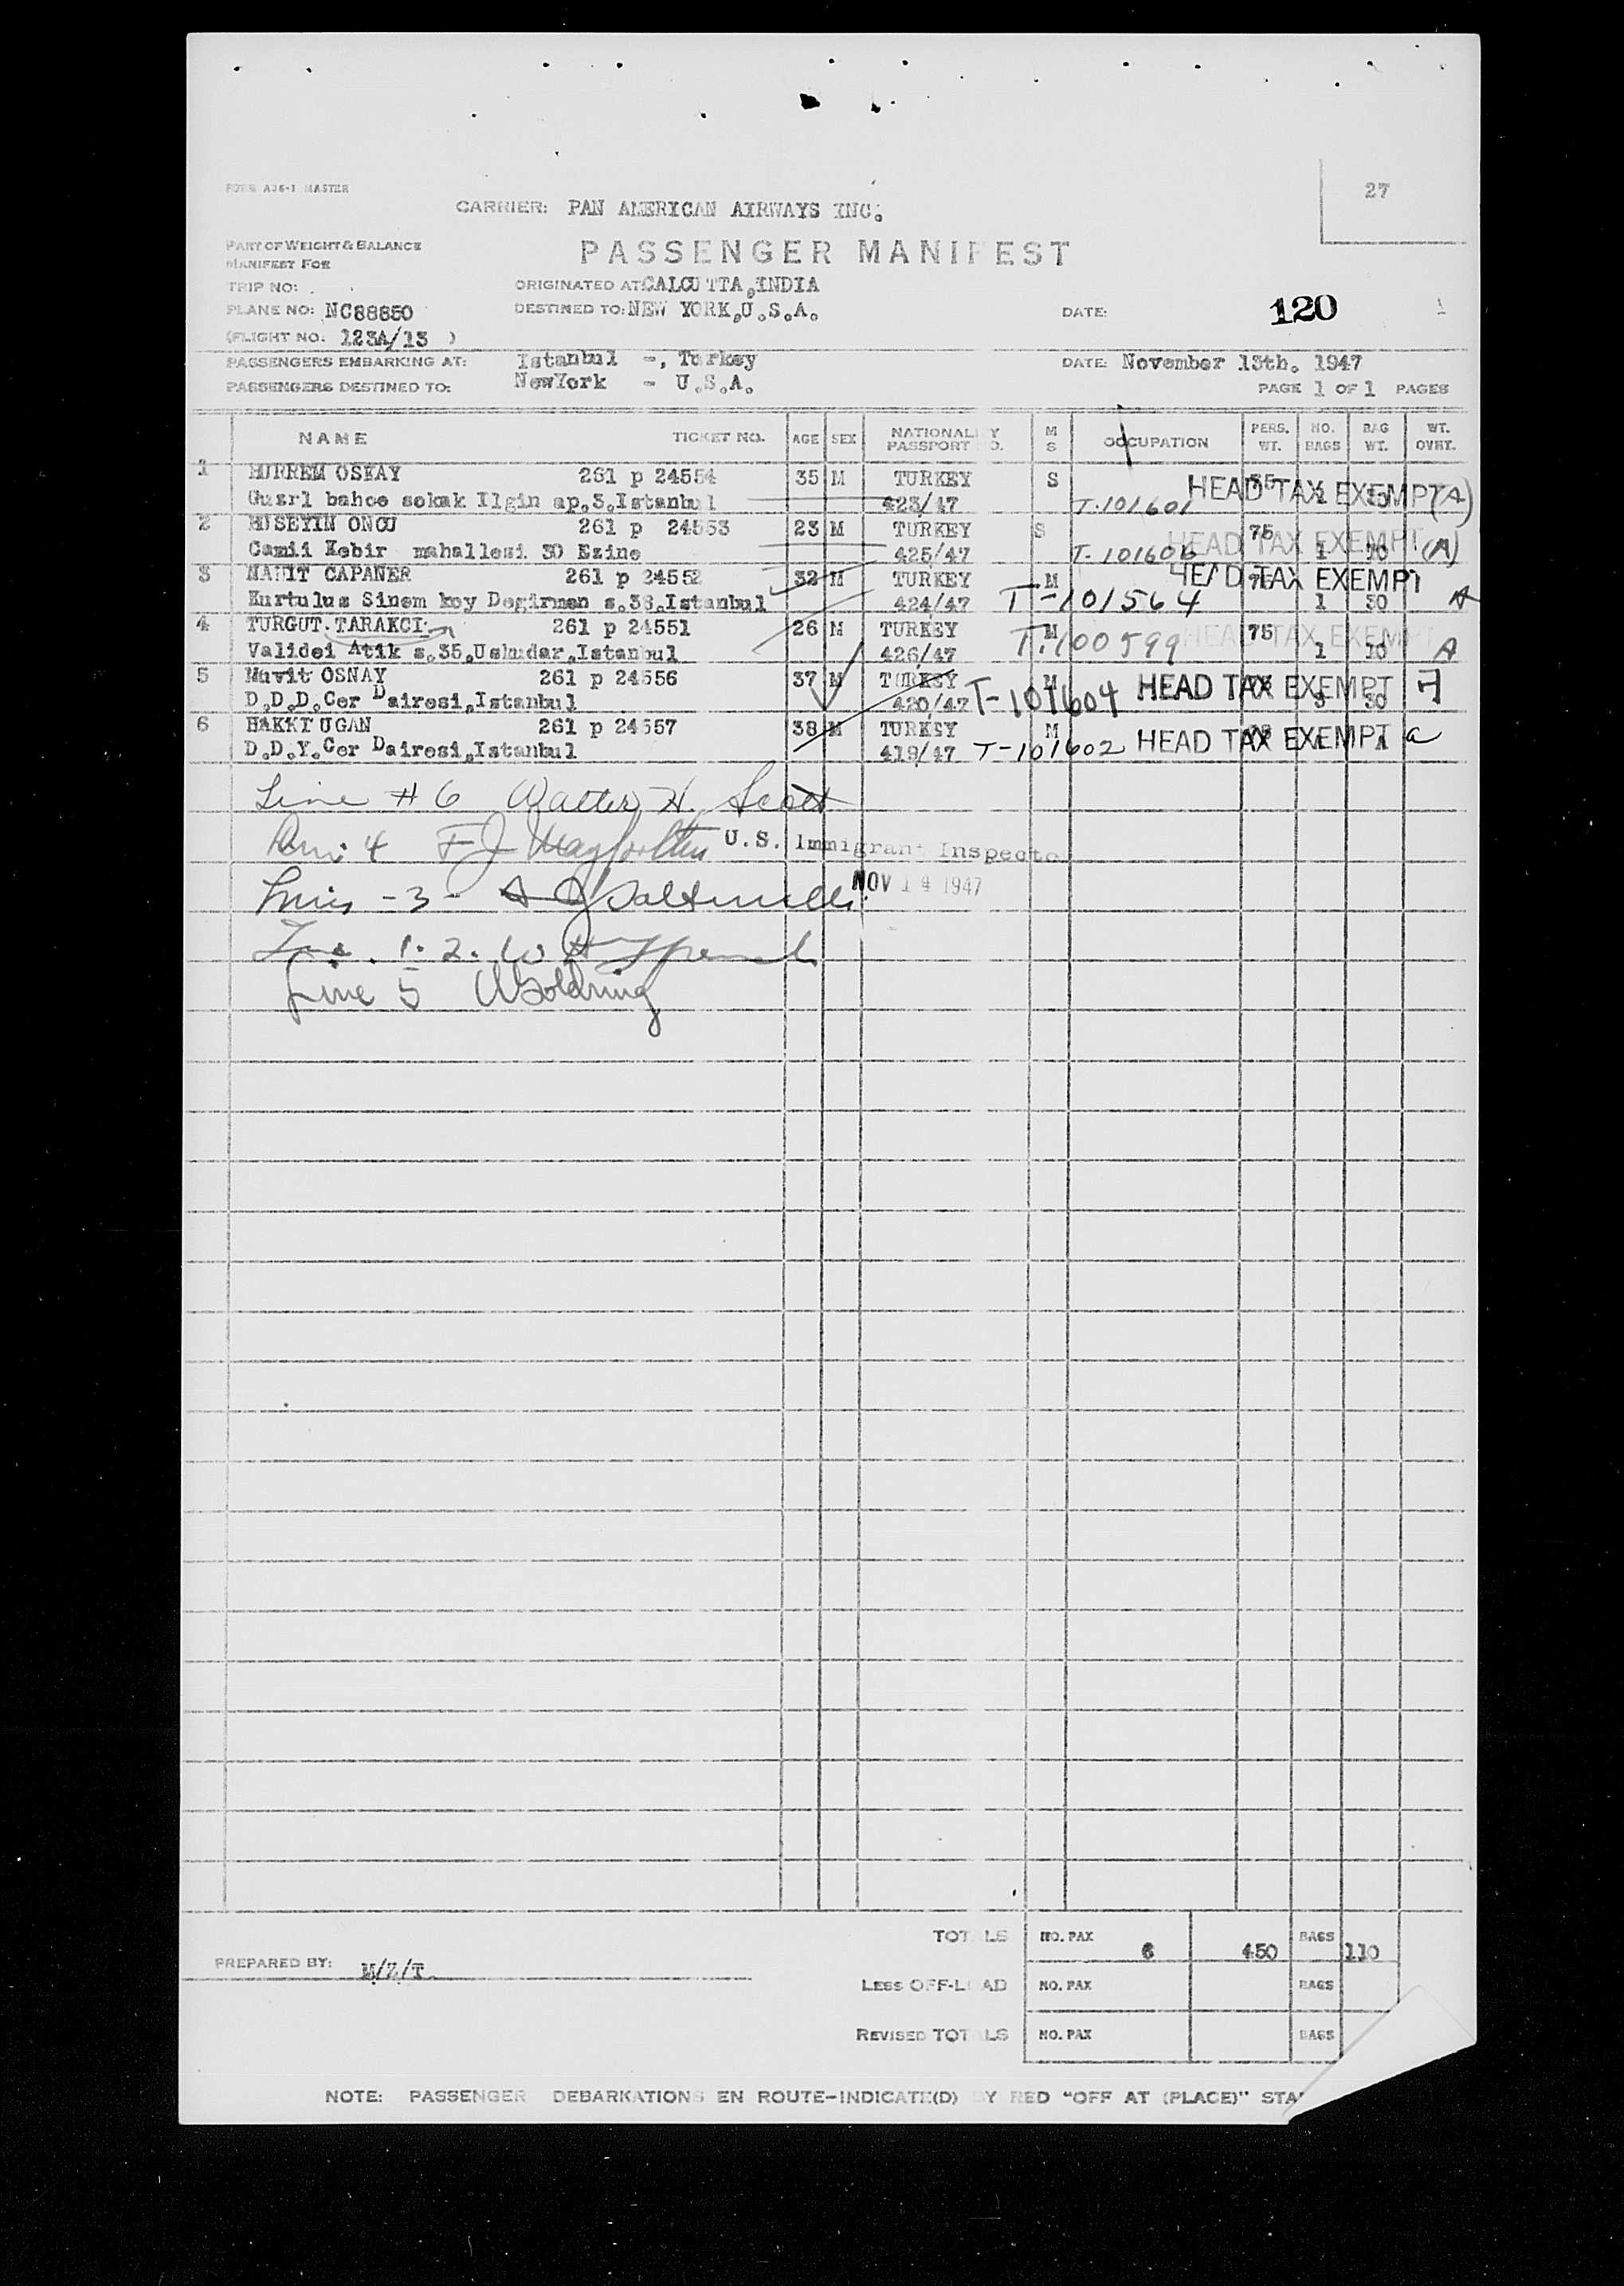 FORM A36-1 MASTER
27
CARRIER: PAN AMERICAN AIRWAYS INC.
PART OF WEIGHT & BALANCE
MANIFEST FOR
PASSENGER MANIFEST
TRIP NO:
ORIGINATED AT: CALCUTTA, INDIA
PLANE NO: NC88850
DESTINED TO: NEW YORK, U.S.A.
DATE: 120 1
(FLIGHT NO. 123A/13 )
PASSENGERS EMBARKING AT: Istanbul -, Turkey
DATE: November 13th. 1947
PASSENGERS DESTINED TO: NewYork - U.S.A.
PAGE 1 OF 1 PAGES
NAME TICKET NO. AGE SEX NATIONALITY PASSPORT NO. M S OCCUPATION PERS. WT. NO. BAGS BAG WT. WT. OVHT.
1 HURREM OSKAY 261 p 24554 35 M TURKEY S HEAD TAX EXEMPT (A)
bahce sokak Ilgin ap.3.Istanbul 423/47 T-101601
2 HUSEYIN ONCU 261 p 24553 23 M TURKEY S 75 HEAD TAX EXEMPT (A)
Camii Kebir mahallesi 30 Ezine 425/47 T-101606 1 10
3 CAPANER 261 p 24552 32 M TURKEY M HEAD TAX EXEMPT
Kurtulus Sinem koy Degirmen s.38.Istanbul 424/47 T-101564 1 30 A
4 TURGUT. TARAKCI 261 p 24551 26 M TURKEY M 75 HEAD TAX EXEMPT
Validei Atik s.35.Uskudar.Istanbul 426/47 T-100599 1 10 A
5 OSNAY 261 p 24556 37 M TURKEY M HEAD TAX EXEMPT
D.D.D.Cer Dairesi,Istanbul 420/47 T-101604 3 30
6 HAKKI UGAN 261 p 24557 38 M TURKEY M HEAD TAX EXEMPT a
D.D.Y.Cer Dairesi,Istanbul 419/47 T-101602
Line # 6 Walter H. Scott
4 F J
U.S. Immigrant Inspector
-3-
NOV 14 1947
1. 2.
Line 5 Goldring
TOTALS NO. PAX 6 450 BAGS 110
PREPARED BY: M/Z/T.
LESS OFF-LOAD NO. PAX BAGS
REVISED TOTALS NO. PAX BAGS
NOTE: PASSENGER DEBARKATIONS EN ROUTE-INDICATE(D) BY RED "OFF AT (PLACE)"